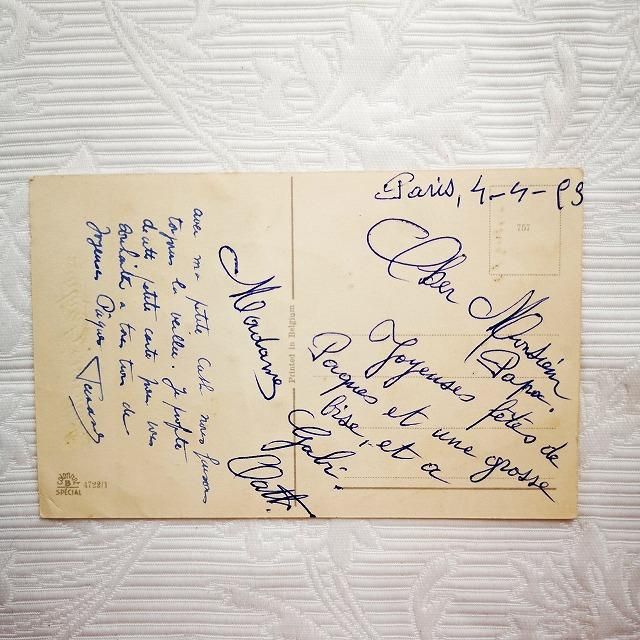 Paris, 4-4-
Cher Monsieur
Papa.
Joyeuses fêtes de
Paques et une grosse
bise, et a
Madame
Gabi.
Cath.
avec ma petite Cath nous faisons
toujours la veillée. Je profite
d'cette petite carte pour vous
souhaiter a tres tous de
Joyeuses Pâques
Printed in Belgium
757
B
SPÉCIAL
4728/1